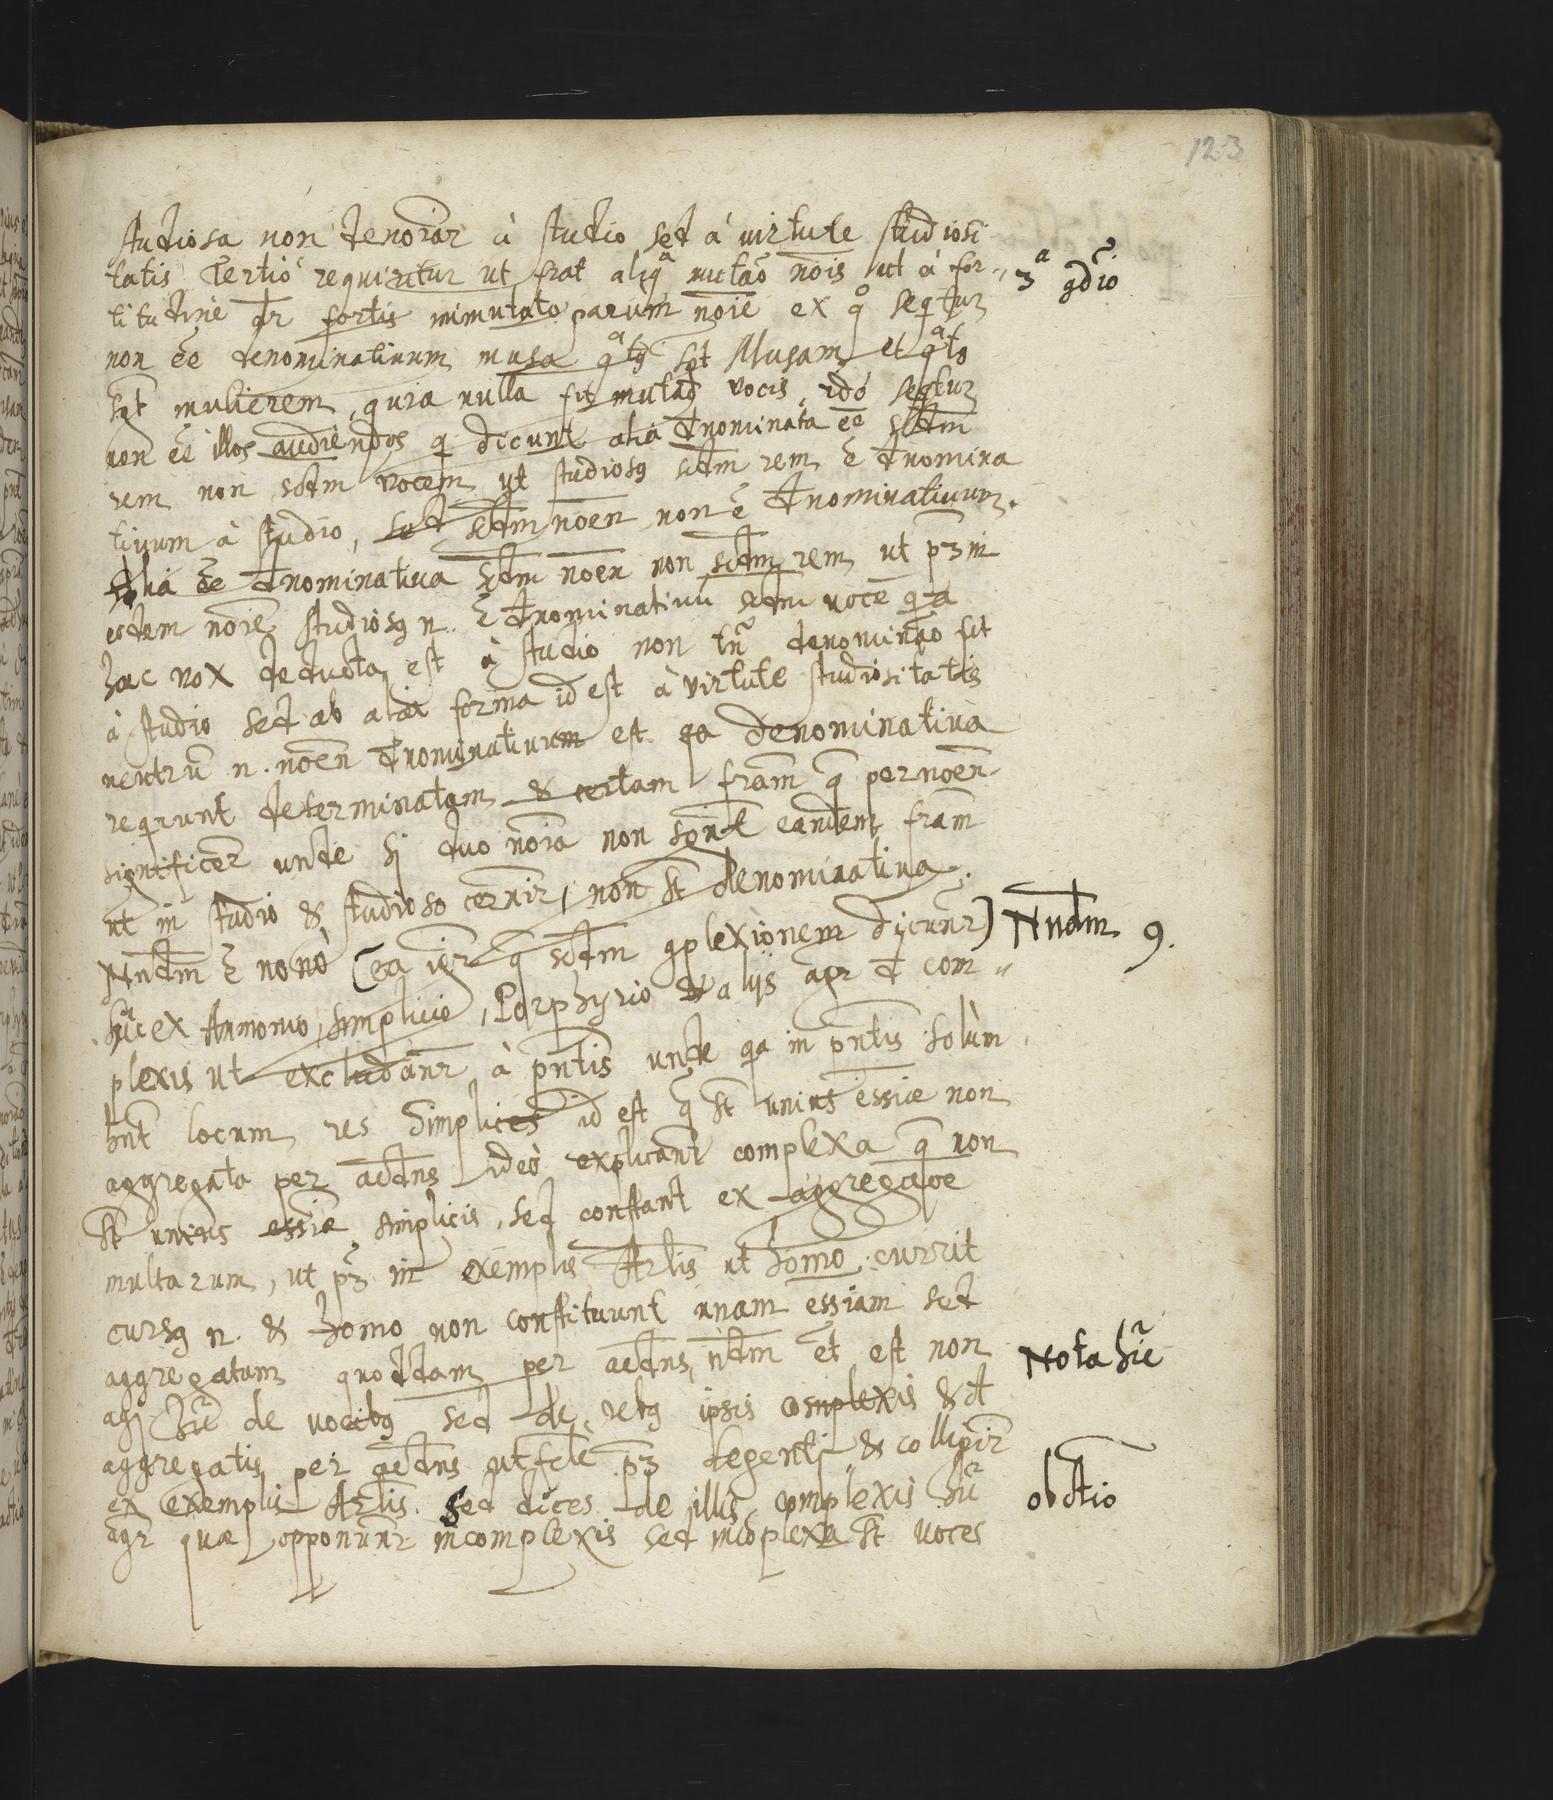 123
studiosa non denoiãr à studio sed à virtute studiosi
tatis Tertiò requiritur ut fiat aliqa mutaõ nõis ut à for-
3a gdio
titudine dr fortis mimutato parum nõie ex qo seqtur
non ẽe denominativum musa sgt Musam et
sgt mulierem, quia nulla fit mutaõ vocis, ideo seqtur
non ẽe illos audiendos q dicunt alia dnominata ẽe scdm
rem non scdm vocem ut studiosq scdm rem ẽ dnomina
tivum à studio, sed scdm nõen non ẽ dnominativum.
Alia ẽe dnominativa scdm nõen non scdm rem ut p3 in
eodem nõie studiosq n. ẽ dnominativũ scdm vocẽ qa
hæc vox deducta est à studio non tñ denominaõ fit
à studio sed ab alia forma id est à virtute studiositatis
neutrũ n. nõen dnominativum est qa denominativa
reqrunt determinatam & certam fram q per nõen
significer unde si duo nõia non sgnt eandem fram
ut in studio & studioso cernir, non st denominativa.
Nndm ẽ nonò (ea igr q scdm gplexionem dicunr)
Nndm 9.
hic ex Ammonio, simplicio, Porphyrio & alijs agr d com
plexis ut excludanr à pntis unde qa in pntis solùm
hnt locum res simplices id est q st unius essiæ non
aggregata per acdns ideò explicant complexa q non
st unius essiæ simplicis, sed constant ex aggregaõe
multarum, ut p3 in exemplis Arlis ut homo currit
cursq n. & homo non constituunt unam essiam sed
aggregatum quoddam per acdns, ndm et est non
Nota hic
agi hic de vocibq sed de rebq ipsis complexis & d
aggregatis per acdns ut fcle p3 legenti & colligir
ex exemplis Arlis. Sed dices de illis complexis hic
obctio
agr quæ opponunr incomplexis sed incõplexa st voces